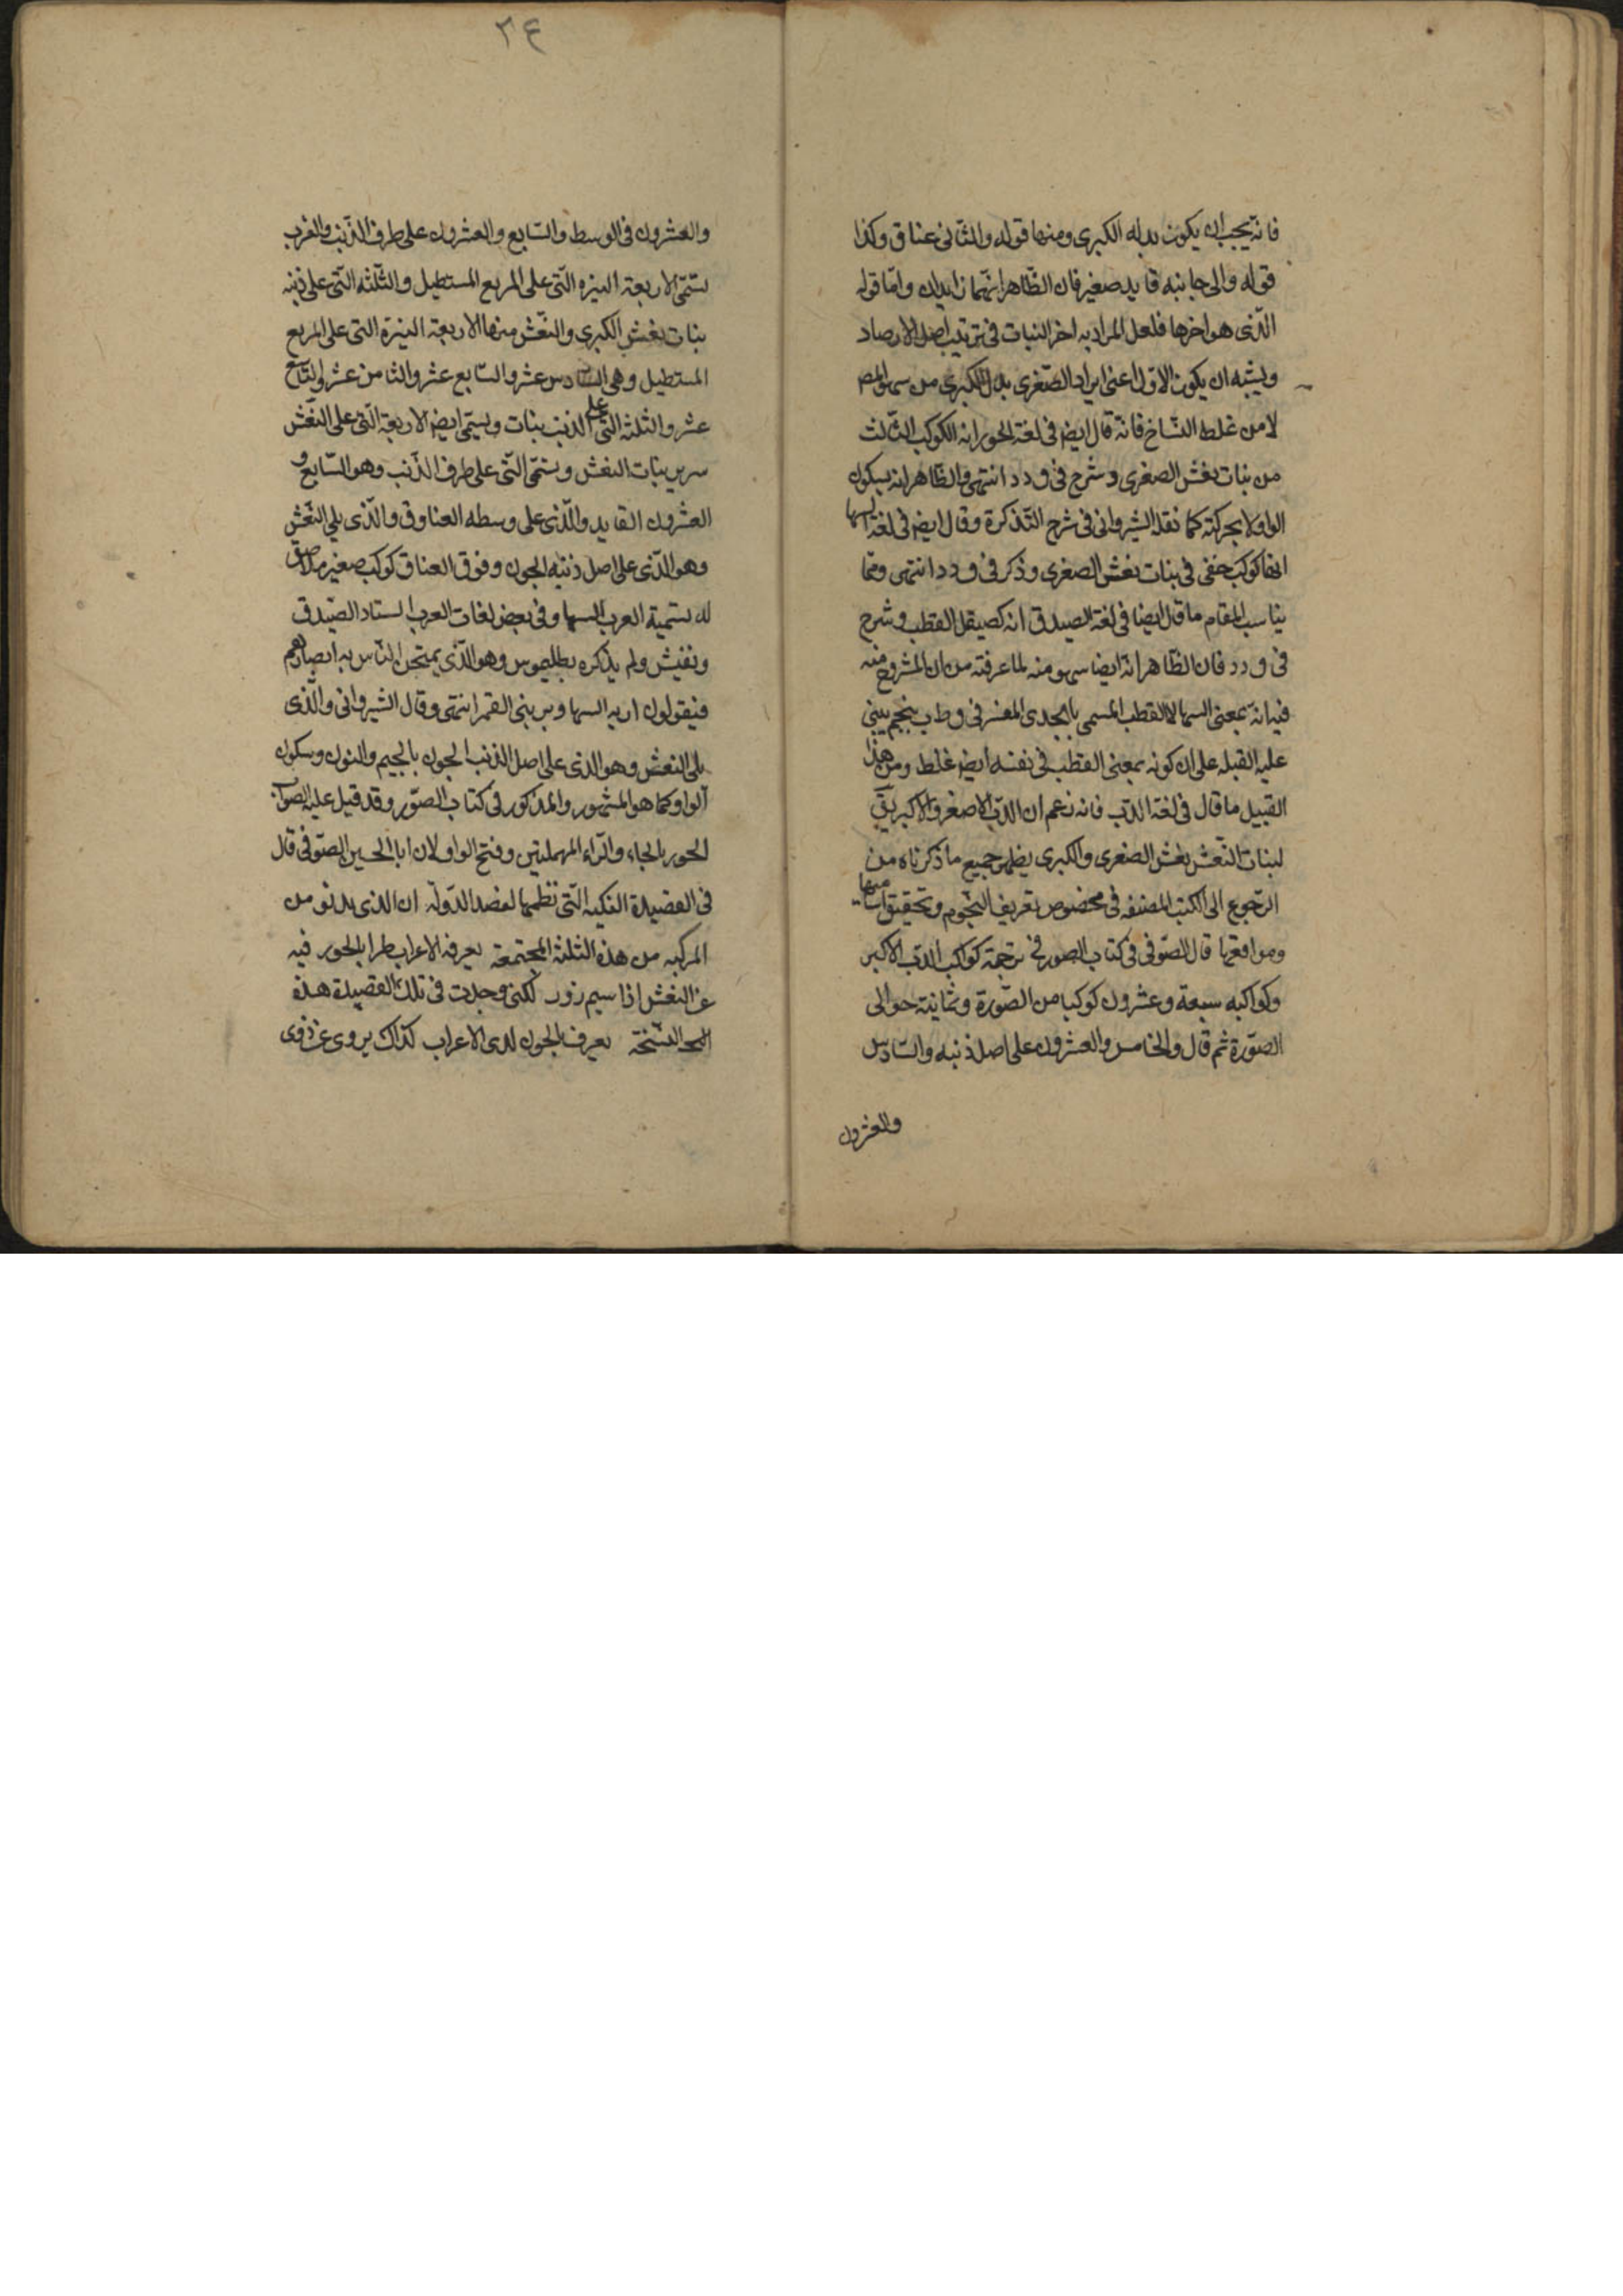 فانه يجب ان يكون بدله الكبرى ومنها قوله والثانى عناق وكذا
قوله والى جانبه قايد صغير فان الظّاهر انّهما زايدان وامّا قوله
الّذى هو اخرها فلعل المراد به اخر البنات فى ترتيب اهل الارصاد
ويشبه ان يكون الاوّل اعنى ايراد الصّغرى بدل الكبرى من سهو المص
لا من غلط النسّاخ فانّه قال ايض فى لغة الحور انه الكوكب الثّالث
من بنات نعش الصغرى وشرح فى ق د د انتهى والظّاهر انه بسكون
الواو لا بحركته كما نقله الشيروانى فى شرح التّذكرة وقال ايض فى لغة السها
انها كوكب خفى فى بنات نعش الصغرى وذكر فى ق د د انتهى وممّا
يناسب المقام ما قال ايضا فى لغة الصيدق انه كصيقل القطب وشرح
فى ق د د فان الظّاهر انّه ايضا سهو منه لما عرفته من ان المشروح منه
فيه انّه بمعنى السها لا القطب المسمى بالجدى المفسر فى ق ط ب بنجم يبنى
عليه القبله على ان كونه بمعنى القطب فى نفسه ايض غلط ومن هذا
القبيل ما قال فى لغة الدّب فانه زعم ان الدّب الاصغر والاكبر يق
لبنات النّعش نعش الصغرى والكبرى يظهر جميع ما ذكرناه من
الرّجوع الى الكتب المصنفه فى مخصوص تعريف النّجوم وتحقيق اساميها
ومواقعها قال الصّوفى فى كتاب الصور فى ترجمة كواكب الدّب الاكبر
وكواكبه سبعة وعشرون كوكبا من الصّورة وثمانية حوالى
الصّورة ثم قال والخامس والعشرون على اصل ذنبه والسّادس
والعشرون
٣٤
والعشرون فى الوسط والسّابع والعشرون على طرف الذّنب والعرب
تسمّى الاربعة النيره الّتى على المربع المستطيل والثّلثه الّتى على ذنبه
بنات نعش الكبرى والنّعش منها الاربعة النيرة التى على المربع
المستطيل وهى السّادس عشر والسّابع عشر والثامن عشر والتّاسع
عشر والثلثه الّتى على الذنب بنات ويسمّى ايض الاربعة الّتى على النّعش
سرير بنات النعش وتسمّى الّتى على طرف الذّنب وهو السّابع و
العشرون القايد والّذى على وسطه العناق والّذى يلى النّعش
وهو الّذى على اصل ذنبه الجون وفوق العناق كوكب صغير ملاصق
له تسمّية العرب السها وفى بعض لغات العرب الستاد الصّيدق
ونفيش ولم يذكره بطلميوس وهو الّذى يمتحن النّاس به ابصارهم
فيقولون اريه السها ويرينى القمر انتهى وقال الشيروانى والّذى
يلى النعش وهو الذى على اصل الذنب الجون بالجيم والنون وسكون
الواو كما هو المشهور والمذكور فى كتاب الصّور وقد قيل عليه الصواب
الحور بالحاء والرّاء المهملتين وفتح الواو لان ابا الحسين الصّوفى قال
فى القصيدة الفلكيه الّتى نظمها لعضد الدّولة ان الذى يدنو من
المركبه من هذه الثلثه المجتمعة يعرفه الاعراب طرا بالحور فيه
عن النعش اذا سيم زور لكنى وجدت فى تلك القصيدة هذه
النسخة يعرف بالجون لدى الاعراب كذاك يروى عن ذوى